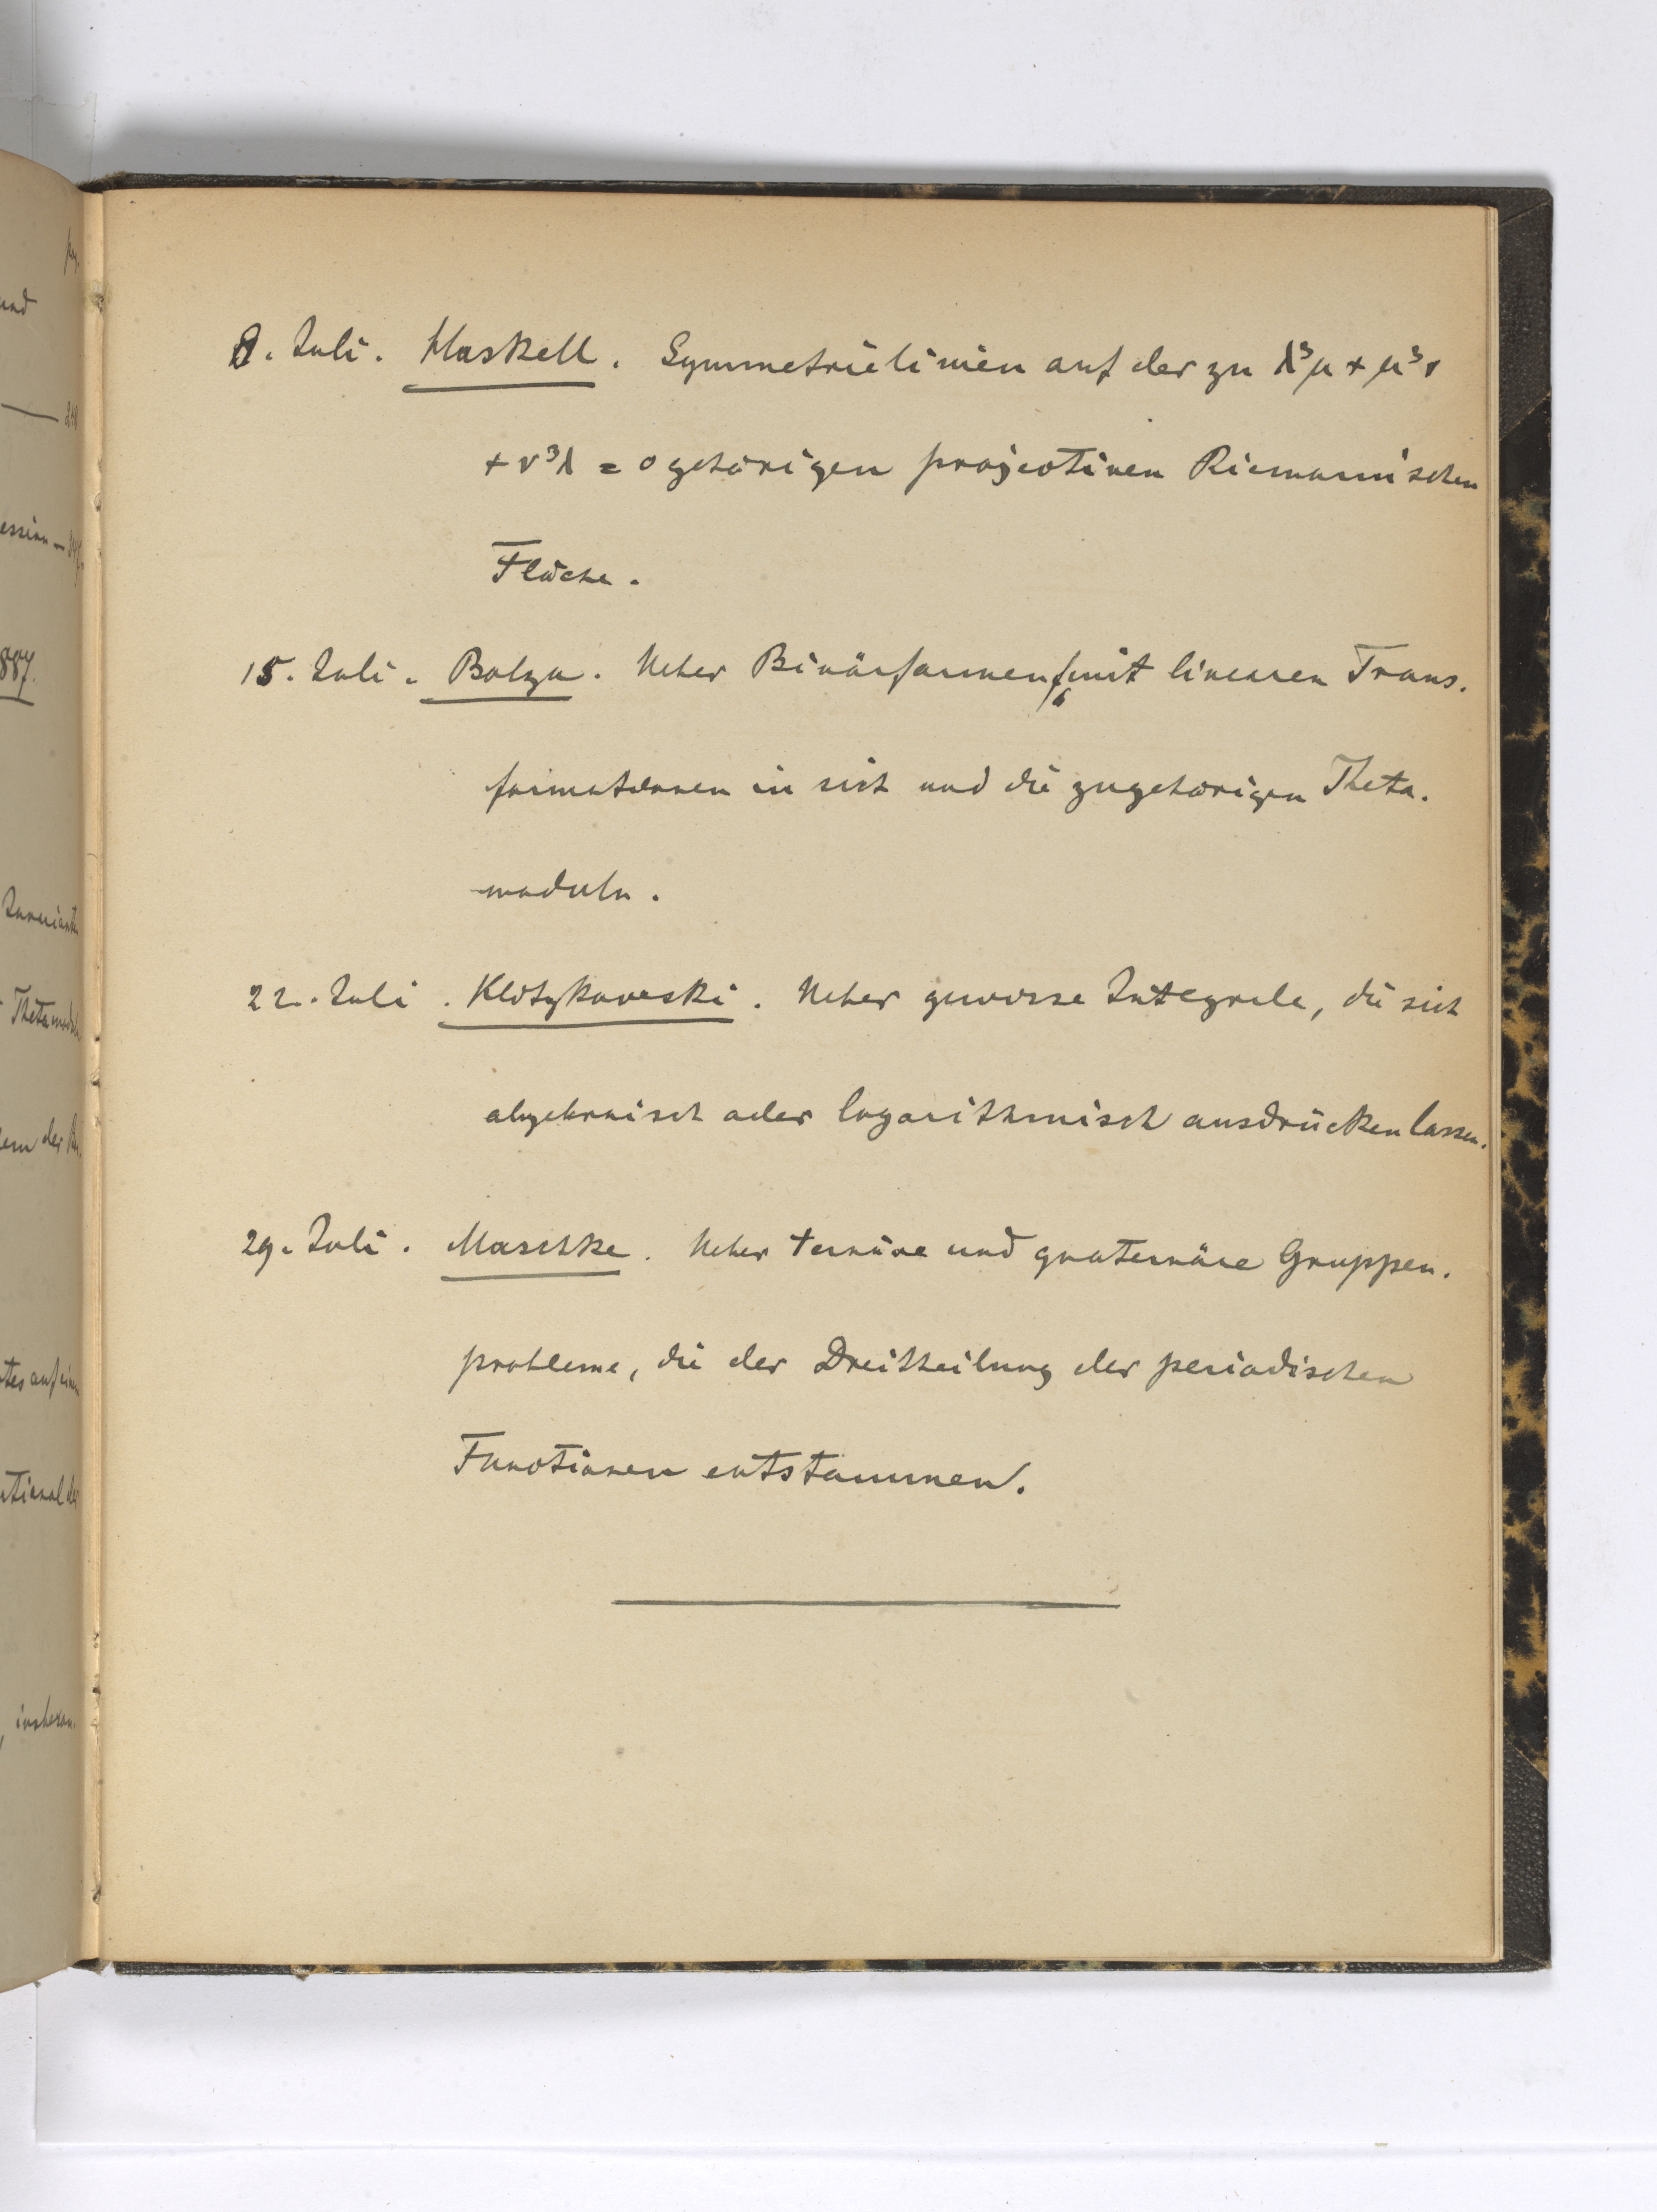 8. Juli. Haskell. Symmetrielinien auf der zu λ³μ + μ³ν
+ ν³λ = 0 gehörigen projectiven Riemannischen
Fläche.
15. Juli. Bolza. Ueber Binärformen f₆ mit linearen Trans-
formationen in sich und die zugehörigen Theta-
moduln.
22. Juli. Klotzkowski. Ueber gewisse Integrale, die sich
algebraisch oder logarithmisch ausdrücken lassen.
29. Juli. Maschke. Ueber ternäre und quaternäre Gruppen-
probleme, die der Dreitheilung der periodischen
Functionen entstammen.
und
887.
Thetamodul